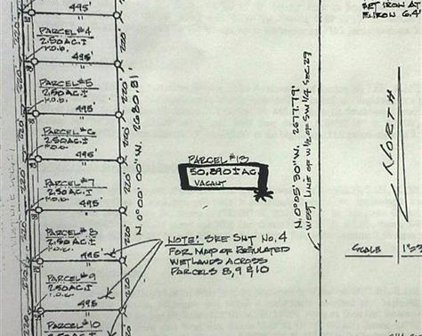 495'
PARCEL #4
2.50 AC.±
495'
PARCEL #5
2.50 AC.±
495'
PARCEL #6
2.50 AC.±
495'
PARCEL #7
2.50 AC.±
495'
PARCEL #8
2.50 AC.±
495'
PARCEL #9
2.50 AC.±
495'
PARCEL #10
220'
220'
220'
220'
220'
220'
N.0°00'00"W. 2680.81'
PARCEL #13
50.890± AC.
VACANT
NOTE: SEE SHT NO. 4
FOR MAP OF REGULATED
WETLANDS ACROSS
PARCELS 8, 9 & 10
WEST LINE OF 1/2 OF SW 1/4 SEC 29
SET IRON AT
E. IRON 6.4'
NORTH
SCALE